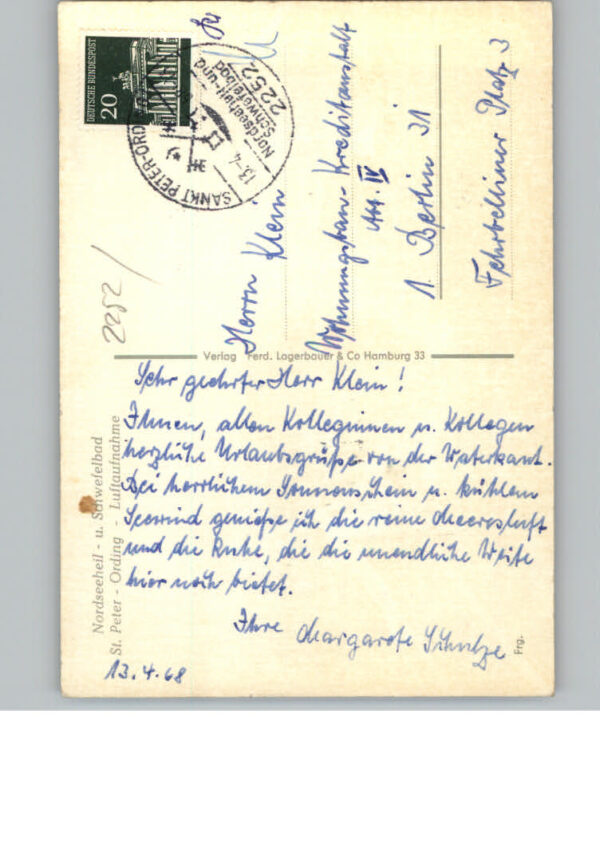 DEUTSCHE BUNDESPOST
20
SANKT PETER-ORDING
Nordseeheil- und
Schwefelbad
2252
13. 4.
Herrn Klein
Wohnungsbau-Kreditanstalt
Abt. IV
1. Berlin 31
Fehrbelliner Platz 3
2252
Verlag Ferd. Lagerbauer & Co Hamburg 33
Nordseeheil- u. Schwefelbad
St. Peter - Ording - Luftaufnahme
Sehr geehrter Herr Klein!
Ihnen, allen Kolleginnen u. Kollegen
herzliche Urlaubsgrüße von der Waterkant.
Bei herrlichem Sonnenschein u. kühlem
Seewind genieße ich die reine Meeresluft
und die Ruhe, die die unendliche Weite
hier noch bietet.
Ihre Margarete Schulze
13.4.68
Frg.